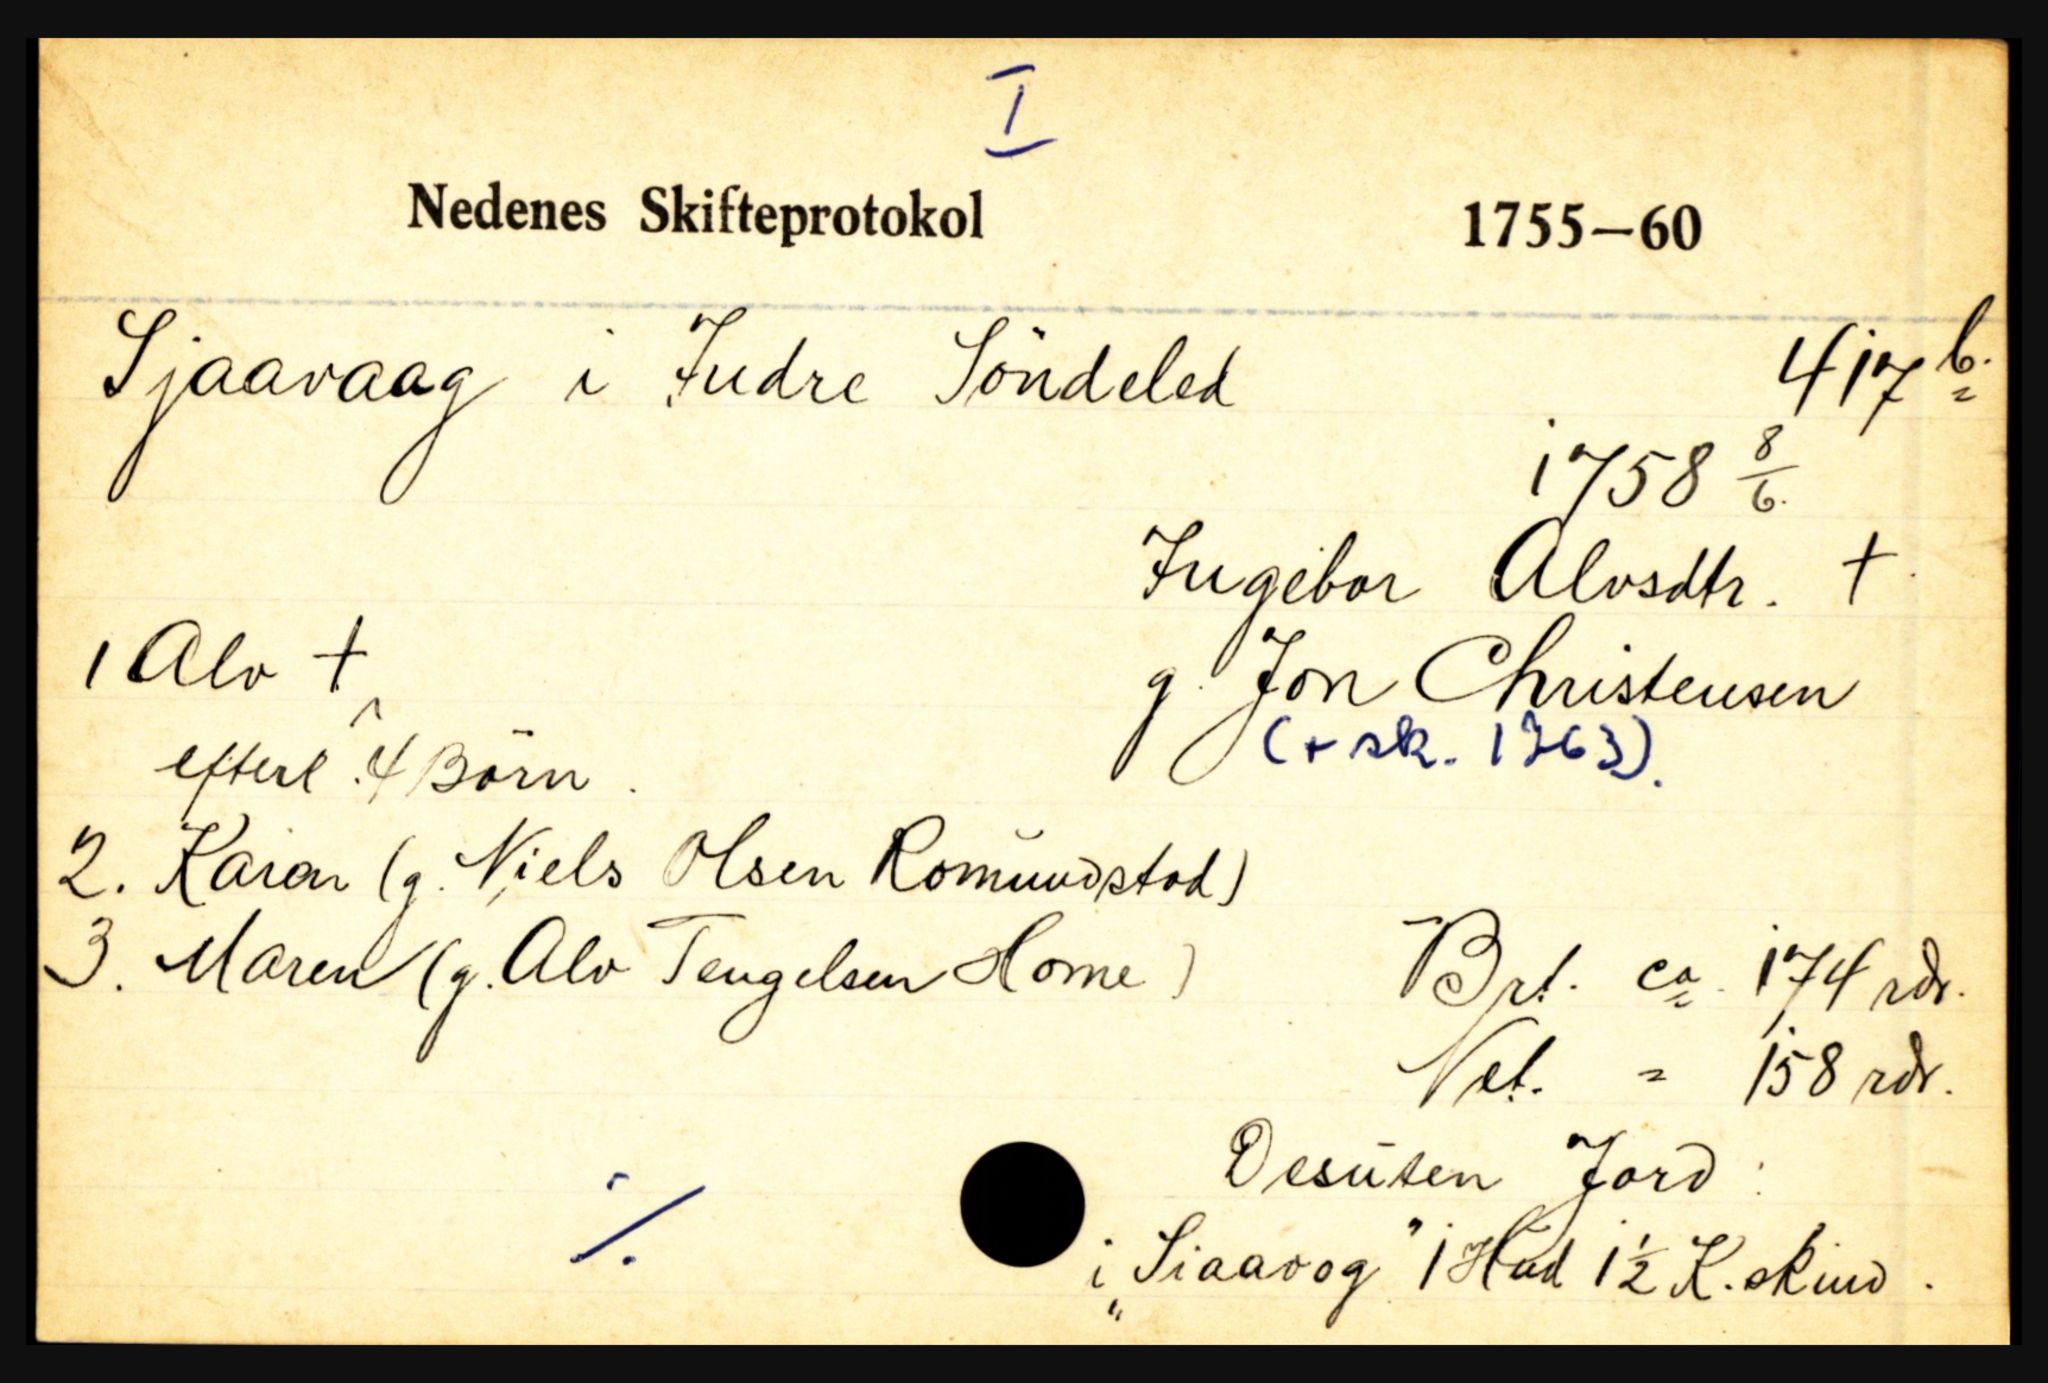 I
Nedenes Skifteprotokol 1755—60
Sjaavaag i Indre Söndeled 417 b.
1758 8/6.
Ingebor Alvsdtr. †
g. Jon Christensen
(+ sk. 1763).
1 Alv †
efterl. 4 Börn.
2. Karen (g. Niels Olsen Romundstad)
3. Maren (g. Alv Tengelsen Home)
Brt. ca. 174 rdr.
Net. = 158 rdr.
Desuten Jord:
i „Siaavog" 1 Hud 1 1/2 K. skind.
·/.